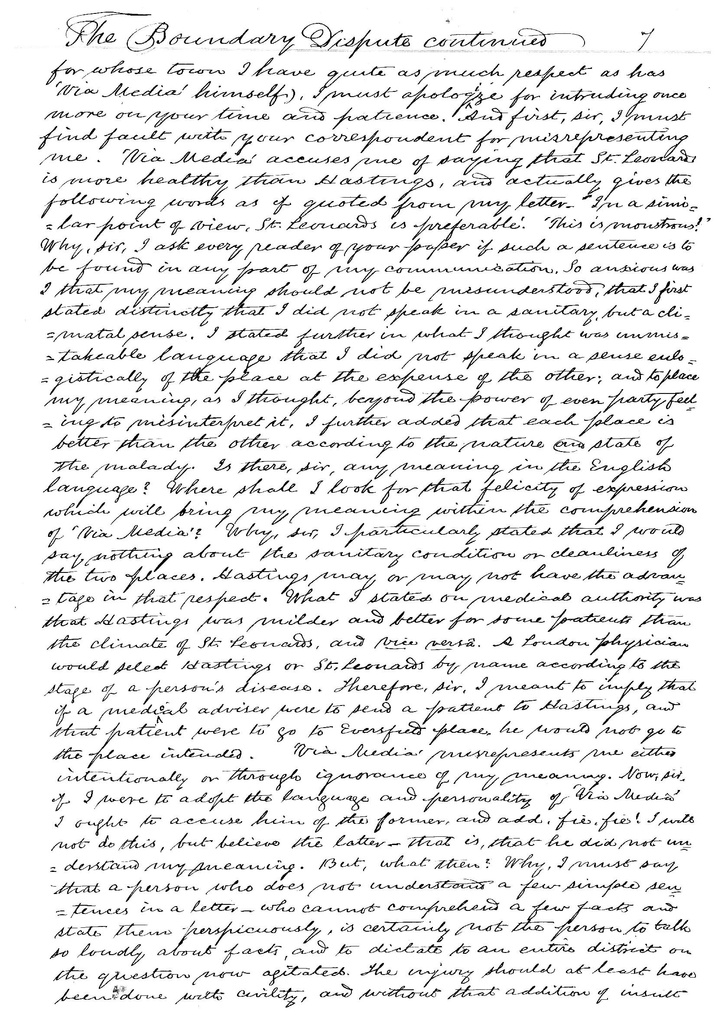 The Boundary Dispute continued 7
for whose town I have quite as much respect as has
'Via Media' himself), I must apologize for intruding once
more on your time and patience. And first, sir, I must
find fault with your correspondent for misrepresenting
me. 'Via Media' accuses me of saying that St. Leonards
is more healthy than Hastings, and actually gives the
following words as if quoted from my letter – "In a simi-
=lar point of view, St. Leonards is preferable.' 'This is monstrous!"
Why, sir, I ask every reader of your paper if such a sentence is to
be found in any part of my communication. So anxious was
I that my meaning should not be misunderstood, that I first
stated distinctly that I did not speak in a sanitary, but a cli-
=matal sense. I stated further in what I thought was unmis-
=takeable language that I did not speak in a sense eulo-
=gistically of the place at the expense of the other; and to place
my meaning, as I thought, beyond the power of even party feel-
=ing to misinterpret it, I further added that each place is
better than the other according to the nature and state of
the malady. Is there, sir, any meaning in the English
language? Where shall I look for that felicity of expression
which will bring my meaning within the comprehension
of 'Via Media'? Why, sir, I particularly stated that I would
say nothing about the sanitary condition or cleanliness of
the two places. Hastings may or may not have the advan-
=tage in that respect. What I stated on medical authority was
that Hastings was milder and better for some patients than
the climate of St. Leonards, and vice versâ. A London physician
would select Hastings or St. Leonards by name according to the
stage of a person's disease. Therefore, sir, I meant to imply that
if a medical adviser were to send a patient to Hastings, and
that patient were to go to Eversfield place, he would not go to
the place intended. 'Via Media' misrepresents me either
intentionally or through ignorance of my meaning. Now, sir,
if I were to adopt the language and personality of 'Via Media'
I ought to accuse him of the former, and add, fie, fie! I will
not do this, but believe the latter – that is, that he did not un-
=derstand my meaning. But, what then? Why, I must say
that a person who does not understand a few simple sen-
=tences in a letter – who cannot comprehend a few facts and
state them perspicuously, is certainly not the person to talk
so loudly about facts, and to dictate to an entire district on
the question now agitated. The injury should at least have
been done with civility, and without that addition of insult